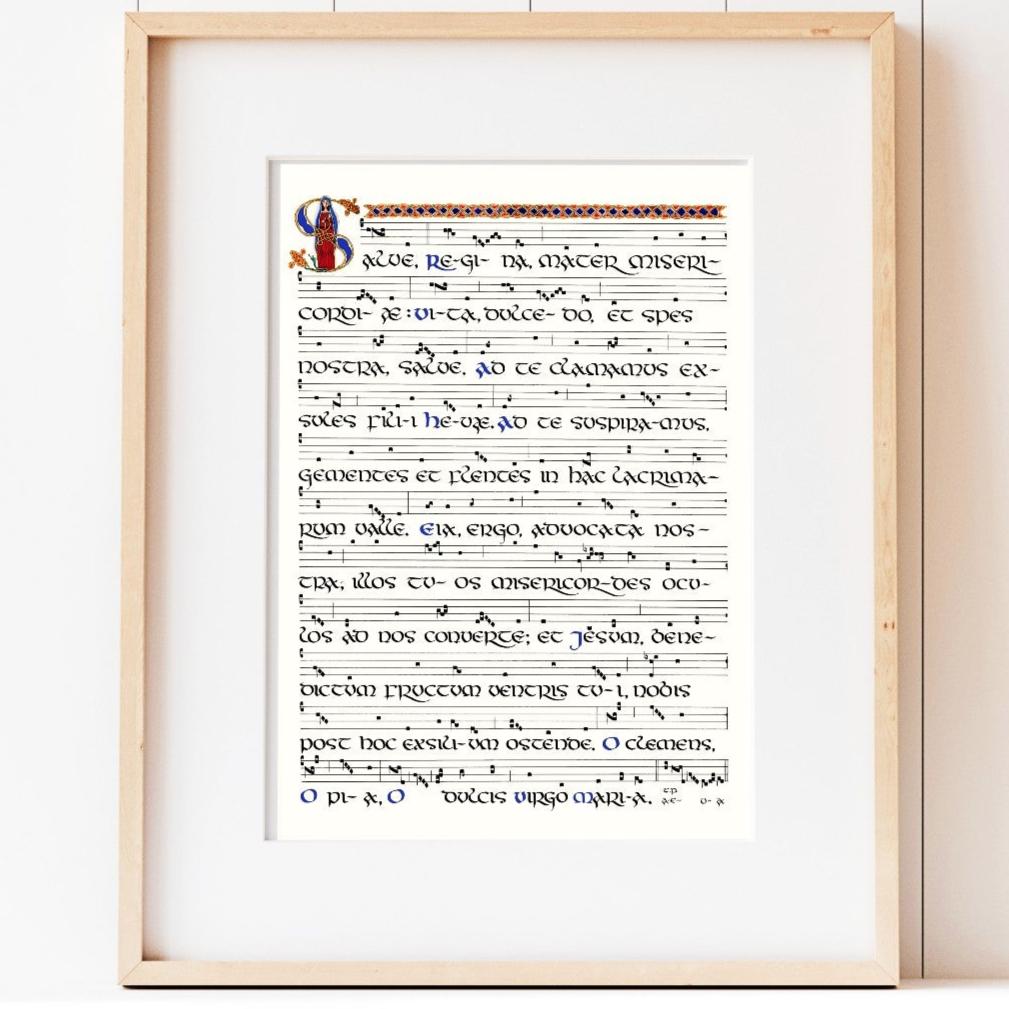 SALVE, RE-GI- NA, MATER MISERI-
CORDI- Æ: VI-TA, DULCE- DO, ET SPES
NOSTRA, SALVE. AD TE CLAMAMUS EX-
SULES FILI-I HE-VÆ. AD TE SUSPIRA-MUS,
GEMENTES ET FLENTES IN HAC LACRIMA-
RUM VALLE. EIA, ERGO, ADVOCATA NOS-
TRA, ILLOS TU- OS MISERICOR-DES OCU-
LOS AD NOS CONVERTE; ET JESUM, BENE-
DICTUM FRUCTUM VENTRIS TU-I, NOBIS
POST HOC EXSILI-UM OSTENDE. O CLEMENS,
O PI- A, O DULCIS VIRGO MARI-A. T.P.
AE- U- A